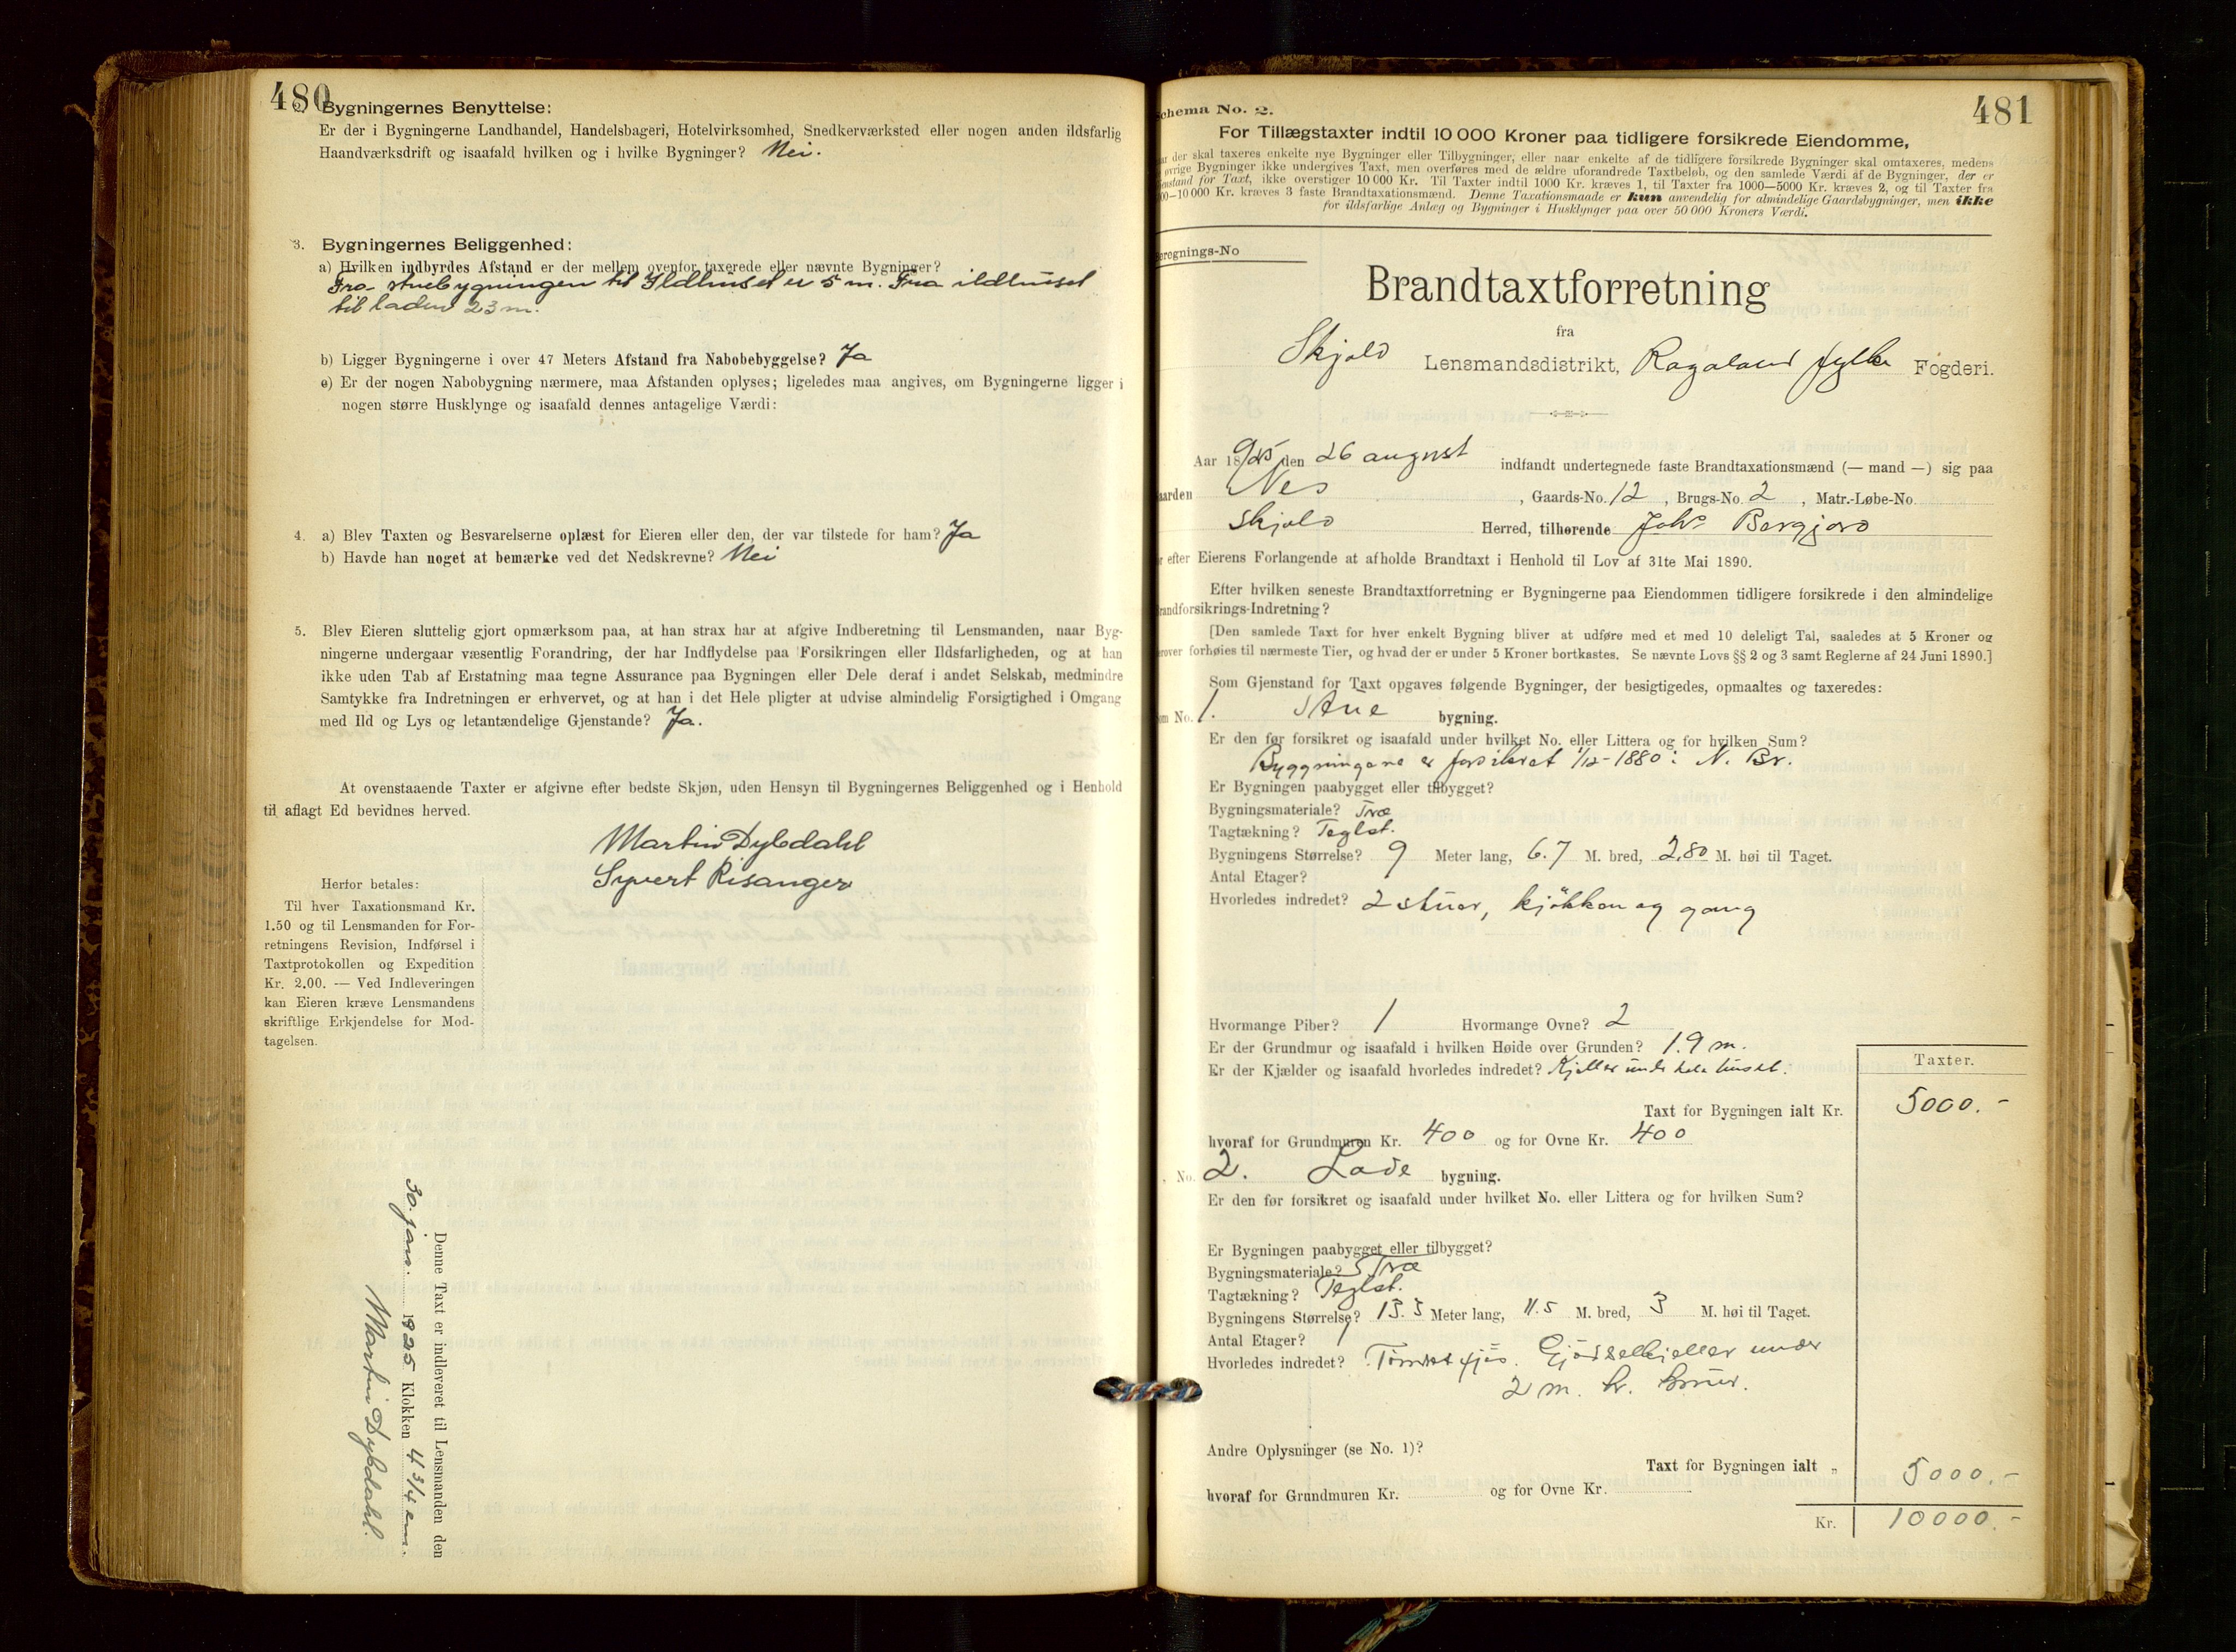 480
2. Bygningernes Benyttelse:
Er der i Bygningerne Landhandel, Handelsbageri, Hotelvirksomhed, Snedkerværksted eller nogen anden ildsfarlig
Haandværksdrift og isaafald hvilken og i hvilke Bygninger? Nei.
3. Bygningernes Beliggenhed:
a) Hvilken indbyrdes Afstand er der mellem ovenfor taxerede eller nævnte Bygninger?
Fra stuebygningen til Ildhuset er 5 m. Fra ildhuset
til laden 23 m.
b) Ligger Bygningerne i over 47 Meters Afstand fra Nabobebyggelse? Ja
c) Er der nogen Nabobygning nærmere, maa Afstanden oplyses; ligeledes maa angives, om Bygningerne ligger i
nogen større Husklynge og isaafald dennes antagelige Værdi:
4. a) Blev Taxten og Besvarelserne oplæst for Eieren eller den, der var tilstede for ham? Ja
b) Havde han noget at bemærke ved det Nedskrevne? Nei
5. Blev Eieren sluttelig gjort opmærksom paa, at han strax har at afgive Indberetning til Lensmanden, naar Byg-
ningerne undergaar væsentlig Forandring, der har Indflydelse paa Forsikringen eller Ildsfarligheden, og at han
ikke uden Tab af Erstatning maa tegne Assurance paa Bygningen eller Dele deraf i andet Selskab, medmindre
Samtykke fra Indretningen er erhvervet, og at han i det Hele pligter at udvise almindelig Forsigtighed i Omgang
med Ild og Lys og letantændelige Gjenstande? Ja.
At ovenstaaende Taxter er afgivne efter bedste Skjøn, uden Hensyn til Bygningernes Beliggenhed og i Henhold
til aflagt Ed bevidnes herved.
Martin Dybdahl
Syvert Risanger
Herfor betales:
Til hver Taxationsmand Kr.
1.50 og til Lensmanden for For-
retningens Revision, Indførsel i
Taxtprotokollen og Expedition
Kr. 2.00. — Ved Indleveringen
kan Eieren kræve Lensmandens
skriftlige Erkjendelse for Mod-
tagelsen.
Denne Taxt er indleveret til Lensmanden den
30. jan. 1925 Klokken 4 3/4 em.
Martin Dybdahl.
481
Schema No. 2.
For Tillægstaxter indtil 10 000 Kroner paa tidligere forsikrede Eiendomme,
der skal taxeres enkelte nye Bygninger eller Tilbygninger, eller naar enkelte af de tidligere forsikrede Bygninger skal omtaxeres, medens
øvrige Bygninger ikke undergives Taxt, men overføres med de ældre uforandrede Taxtbeløb, og den samlede Værdi af de Bygninger, der er
Gjenstand for Taxt, ikke overstiger 10 000 Kr. Til Taxter indtil 1000 Kr. kræves 1, til Taxter fra 1000—5000 Kr. kræves 2, og til Taxter fra
5000—10 000 Kr. kræves 3 faste Brandtaxationsmænd. Denne Taxationsmaade er kun anvendelig for almindelige Gaardsbygninger, men ikke
for ildsfarlige Anlæg og Bygninger i Husklynger paa over 50 000 Kroners Værdi.
Beregnings-No
Brandtaxtforretning
fra
Skjold Lensmandsdistrikt, Rogaland fylke Fogderi.
Aar 1925 den 26 august indfandt undertegnede faste Brandtaxationsmænd (— mand —) sig paa
Gaarden Nes, Gaards-No. 12, Brugs-No. 2, Matr.-Løbe-No.
Skjold Herred, tilhørende Johs Borgjord
efter Eierens Forlangende at afholde Brandtaxt i Henhold til Lov af 31te Mai 1890.
Efter hvilken seneste Brandtaxtforretning er Bygningerne paa Eiendommen tidligere forsikrede i den almindelige
Brandforsikrings-Indretning?
[Den samlede Taxt for hver enkelt Bygning bliver at udføre med et med 10 deleligt Tal, saaledes at 5 Kroner og
derover forhøies til nærmeste Tier, og hvad der er under 5 Kroner bortkastes. Se nævnte Lovs §§ 2 og 3 samt Reglerne af 24 Juni 1890.]
Som Gjenstand for Taxt opgaves følgende Bygninger, der besigtigedes, opmaaltes og taxeredes:
Som No. 1. Stue bygning.
Er den før forsikret og isaafald under hvilket No. eller Littera og for hvilken Sum?
Byggningane er forsikret 1/12-1880 i N. Br.
Er Bygningen paabygget eller tilbygget?
Bygningsmateriale? Træ
Tagtækning? Teglst.
Bygningens Størrelse? 9 Meter lang, 6.7 M. bred, 2,80 M. høi til Taget.
Antal Etager?
Hvorledes indredet? 2 stuer, kjökken og gang
Hvormange Piber? 1 Hvormange Ovne? 2
Er der Grundmur og isaafald i hvilken Høide over Grunden? 1.9 m.
Er der Kjælder og isaafald hvorledes indredet? Kjeller under hele huset.
Taxter.
Taxt for Bygningen ialt Kr. 5000.-
hvoraf for Grundmuren Kr. 400 og for Ovne Kr. 400
No. 2. Lade bygning.
Er den før forsikret og isaafald under hvilket No. eller Littera og for hvilken Sum?
Er Bygningen paabygget eller tilbygget?
Bygningsmateriale? Træ
Tagtækning? Teglst.
Bygningens Størrelse? 13.3 Meter lang, 11.5 M. bred, 3 M. høi til Taget.
Antal Etager? 1
Hvorledes indredet? Tømret fjøs. Gjødselkjeller under
2 m. h. mur.
Andre Oplysninger (se No. 1)?
Taxt for Bygningen ialt „ 5000.-
hvoraf for Grundmuren Kr. og for Ovne Kr.
Kr. 10000.-